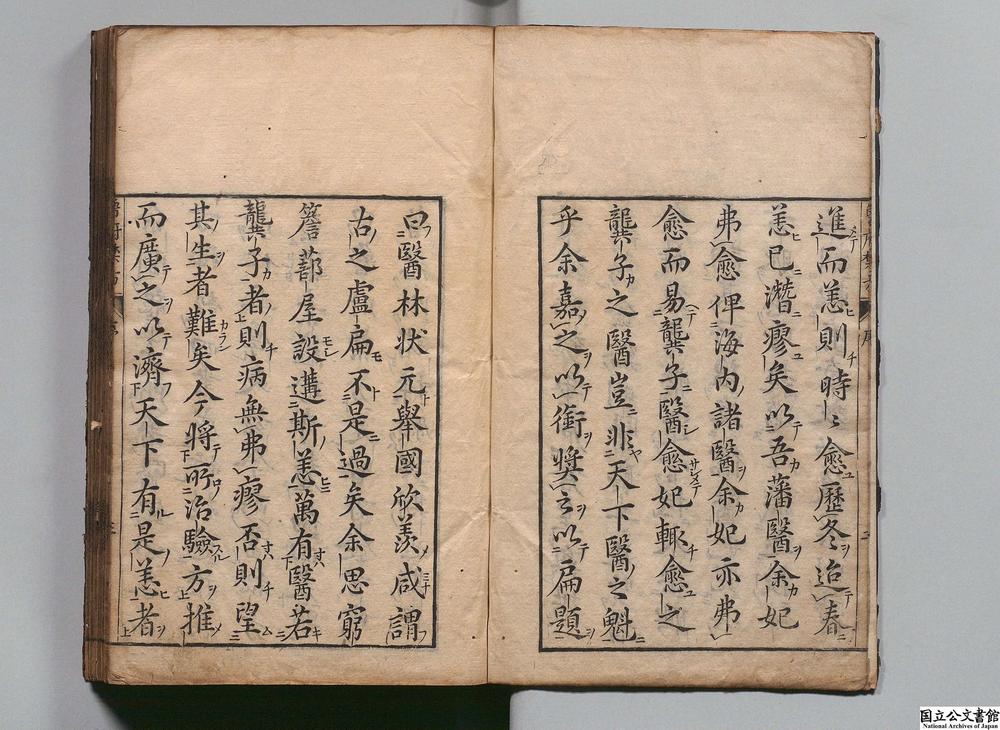 進而恙則時〻愈歷冬迨春
恙已潛瘳矣以吾藩醫余妃
弗愈俾海內諸醫余妃亦弗
愈而易龔子醫愈妃輙愈之
龔子之醫豈非天下醫之魁
乎余嘉之以銜奬云以扁題
曰醫林状元舉國欣羨咸謂
古之盧扁不是過矣余思窮
簷蔀屋設遘斯恙萬有醫若
龔子者則病無弗瘳否則望
其生者難矣今將所治驗方推
而廣之以濟天下有是恙者
国立公文書館
National Archives of Japan